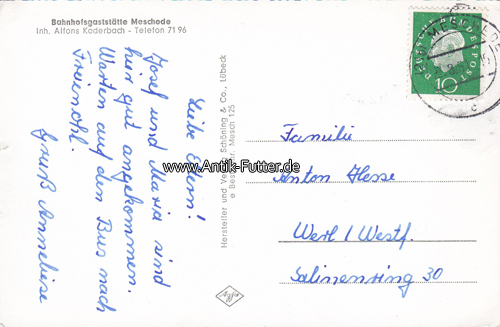 Bahnhofsgaststätte Meschede
Inh. Alfons Kaderbach - Telefon 7196
Liebe Eltern!
Josef und Maria sind
hier gut angekommen.
Warten auf den Bus nach
Freienohl.
Gruß Anneliese
Hersteller und Schöning & Co., Lübeck
Mesch 125
www.Antik-Futter.de
DEUTSCHE BUNDESPOST
10
MESCHEDE
c
Familie
Anton Hesse
Werl / Westf.
Salinenring 30
Agfa